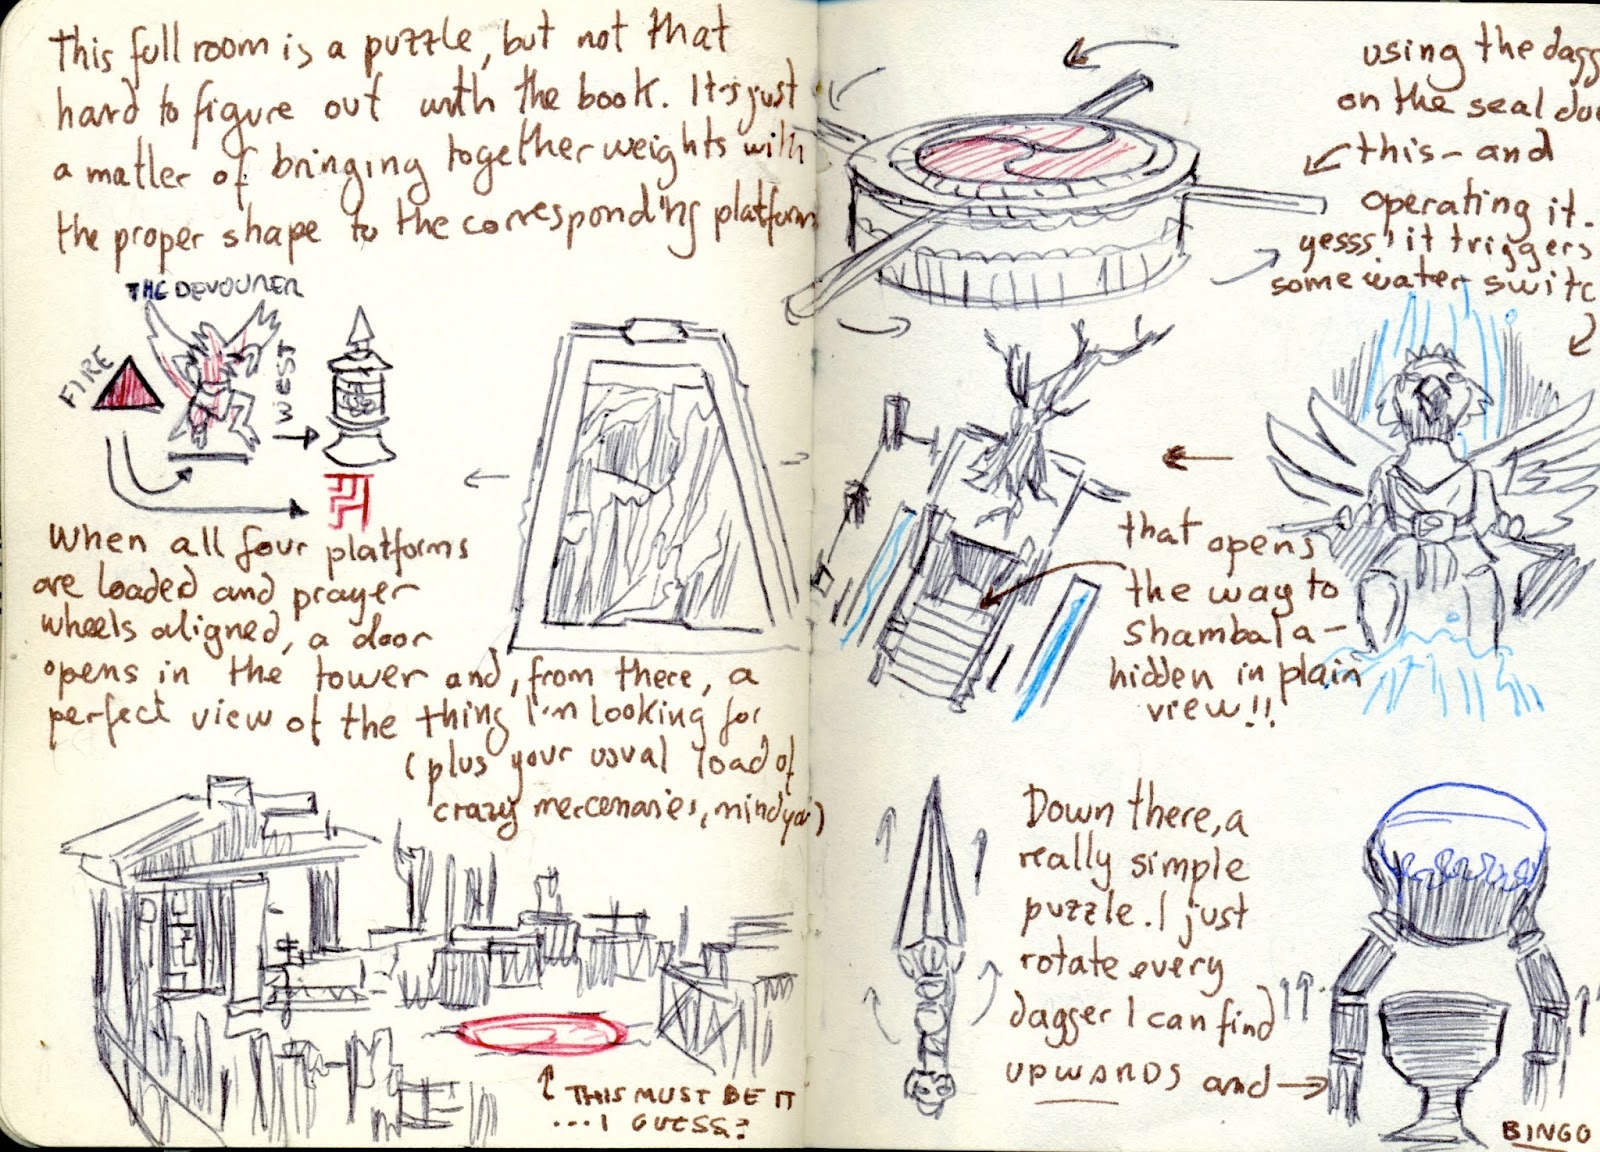 This full room is a puzzle, but not that
hard to figure out with the book. It's just
a matter of bringing together weights with
the proper shape to the corresponding platform
THE DEVOURER
FIRE
WEST
When all four platforms
are loaded and prayer
wheels aligned, a door
opens in the tower and, from there, a
perfect view of the thing I'm looking for
(plus your usual load of
crazy mercenaries, mind you)
THIS MUST BE IT
...I GUESS?
using the dagg
on the seal doe
this - and
operating it.
yesss! it triggers
some water switc
that opens
the way to
shambala -
hidden in plain
view!!
Down there, a
really simple
puzzle. I just
rotate every
dagger I can find
UPWARDS and
BINGO